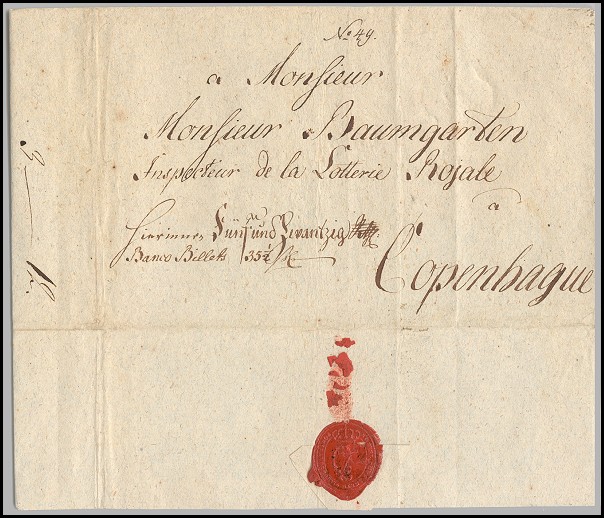 No 49.
a Monsieur
Monsieur Baumgarten
Inspecteur de la Lotterie Rojale
a
Copenhague
Hierinnen Fünf und Zwantzig
Banco Billets 35½